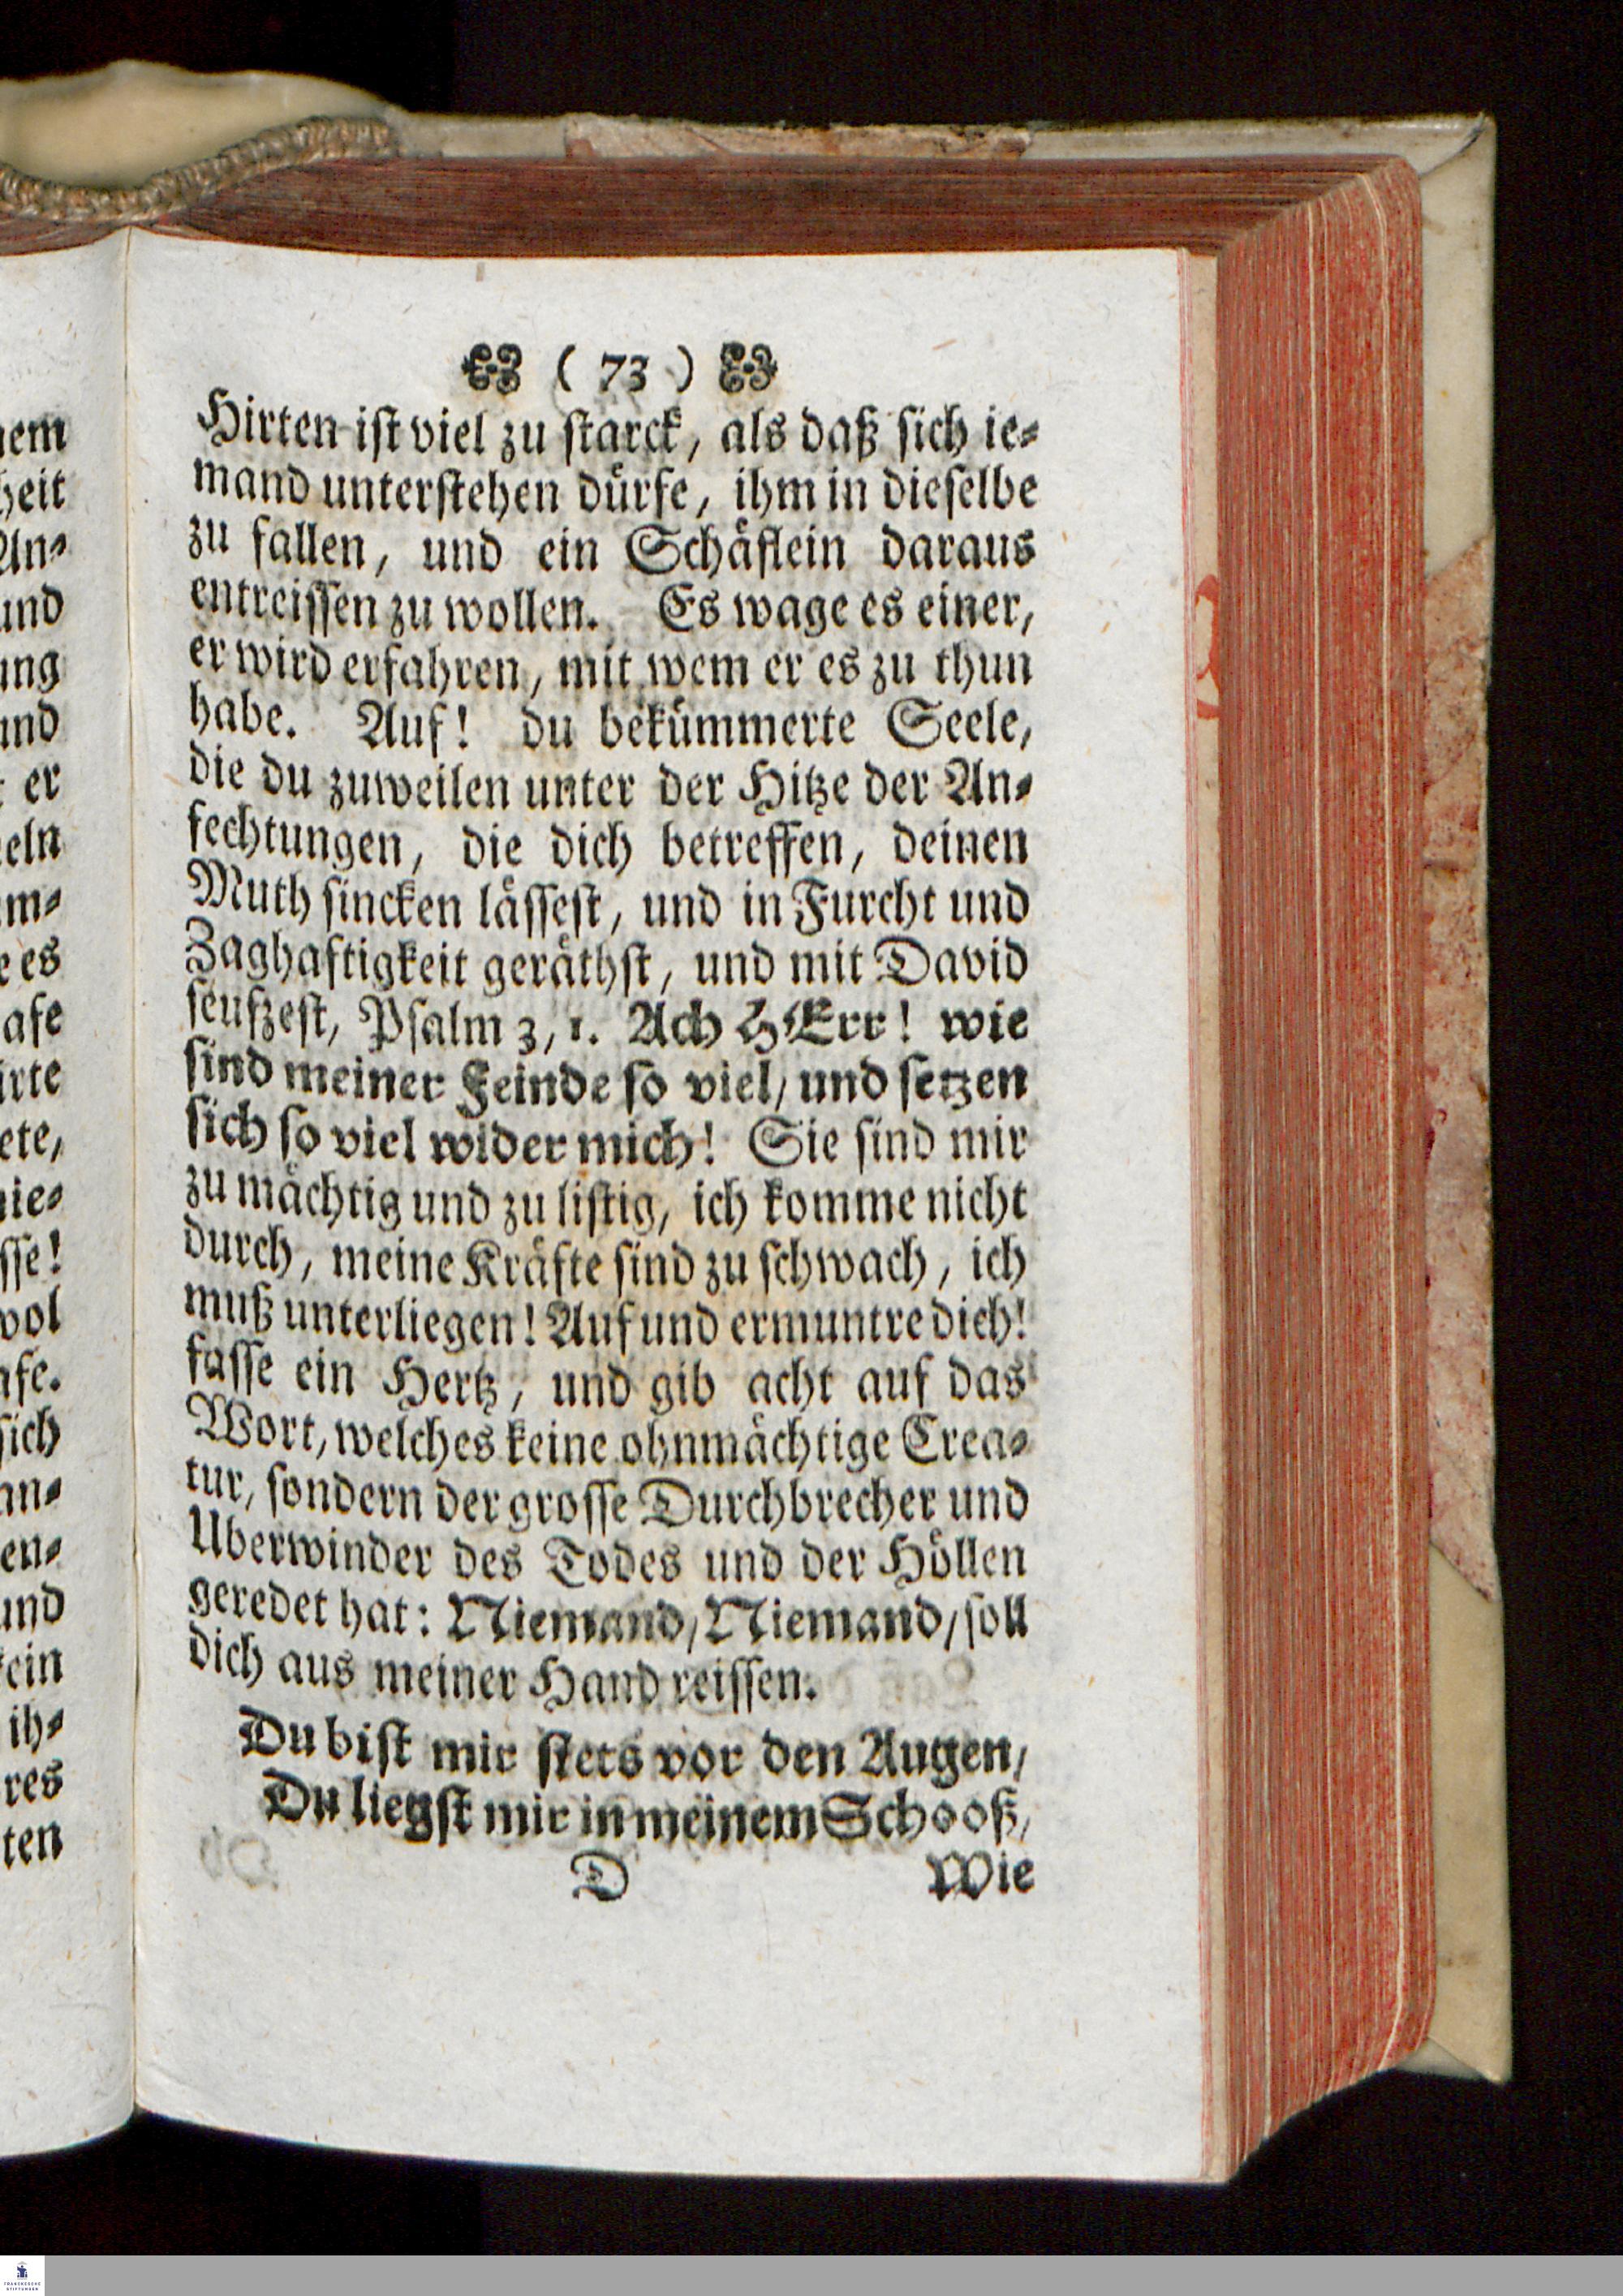 ( 73 )
Hirten ist viel zu starck, als daß sich ie-
mand unterstehen dürfe, ihm in dieselbe
zu fallen, und ein Schäflein daraus
entreissen zu wollen. Es wage es einer,
er wird erfahren, mit wem er es zu thun
habe. Auf! du bekümmerte Seele,
die du zuweilen unter der Hitze der An-
fechtungen, die dich betreffen, deinen
Muth sincken lässest, und in Furcht und
Zaghaftigkeit geräthst, und mit David
seufzest, Psalm 3, 1. Ach HErr! wie
sind meiner Feinde so viel/ und setzen
sich so viel wider mich! Sie sind mir
zu mächtig und zu listig, ich komme nicht
durch, meine Kräfte sind zu schwach, ich
muß unterliegen! Auf und ermuntre dich!
fasse ein Hertz, und gib acht auf das
Wort, welches keine ohnmächtige Crea-
tur, sondern der grosse Durchbrecher und
Uberwinder des Todes und der Höllen
geredet hat: Niemand/ Niemand/ soll
dich aus meiner Hand reissen.
Du bist mir stets vor den Augen/
Du liegst mir in meinem Schooß,
D Wie
nem
heit
An-
und
ung
und
er
eln
m-
e es
afe
irte
ete,
nie-
sse!
wol
afe.
sich
an-
en-
und
kein
ih-
res
ten
FRANCKESCHE
STIFTUNGEN